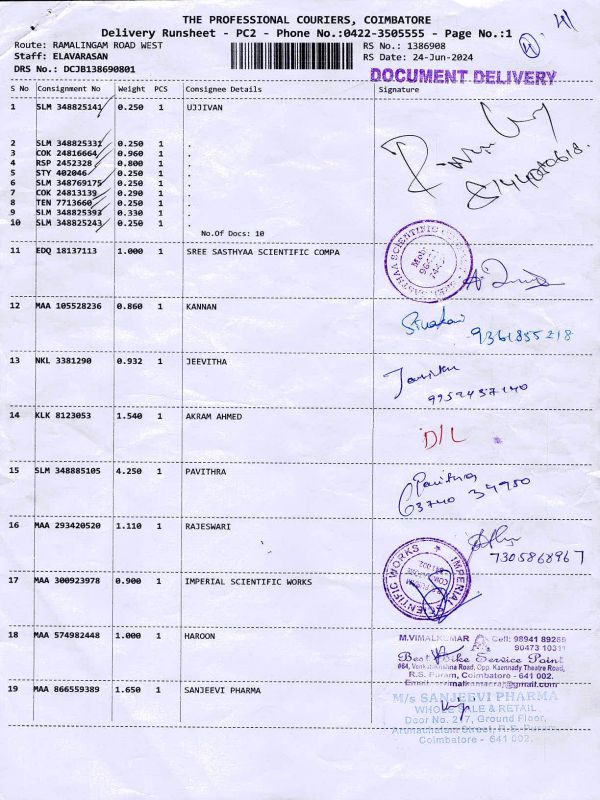 THE PROFESSIONAL COURIERS, COIMBATORE
Delivery Runsheet - PC2 - Phone No.:0422-3505555 - Page No.:1
Route: RAMALINGAM ROAD WEST RS No.: 1386908
Staff: ELAVARASAN RS Date: 24-Jun-2024
DRS No.: DCJB138690801
DOCUMENT DELIVERY
S No Consignment No Weight PCS Consignee Details Signature
1 SLM 348825141 0.250 1 UJJIVAN
2 SLM 348825331 0.250 1 .
3 COK 24816664 0.960 1 .
4 RSP 2452328 0.800 1 .
5 STY 402046 0.250 1 .
6 SLM 348769175 0.250 1 .
7 COK 24813139 0.290 1 .
8 TEN 7713660 0.250 1 .
9 SLM 348825393 0.330 1 .
10 SLM 348825243 0.250 1 .
No.Of Docs: 10
11 EDQ 18137113 1.000 1 SREE SASTHYAA SCIENTIFIC COMPA
12 MAA 105528236 0.860 1 KANNAN
9361855218
13 NKL 3381290 0.932 1 JEEVITHA
9952437140
14 KLK 8123053 1.540 1 AKRAM AHMED
D/L
15 SLM 348885105 4.250 1 PAVITHRA
Pavithra
63740 34950
16 MAA 293420520 1.110 1 RAJESWARI
7305868967
17 MAA 300923978 0.900 1 IMPERIAL SCIENTIFIC WORKS
IMPERIAL SCIENTIFIC WORKS
18 MAA 574982448 1.000 1 HAROON
M.VIMALKUMAR Cell: 98941 89289
90473 10311
Best Bike Service Point
#64, Venkatakrishna Road, Opp. Kaennady Theatre Road,
R.S. Puram, Coimbatore - 641 002.
19 MAA 866559389 1.650 1 SANJEEVI PHARMA
M/s SANJEEVI PHARMA
WHOLE SALE & RETAIL
Door No. 2/7, Ground Floor,
Arunachalam Street, R.S. Puram,
Coimbatore - 641 002.